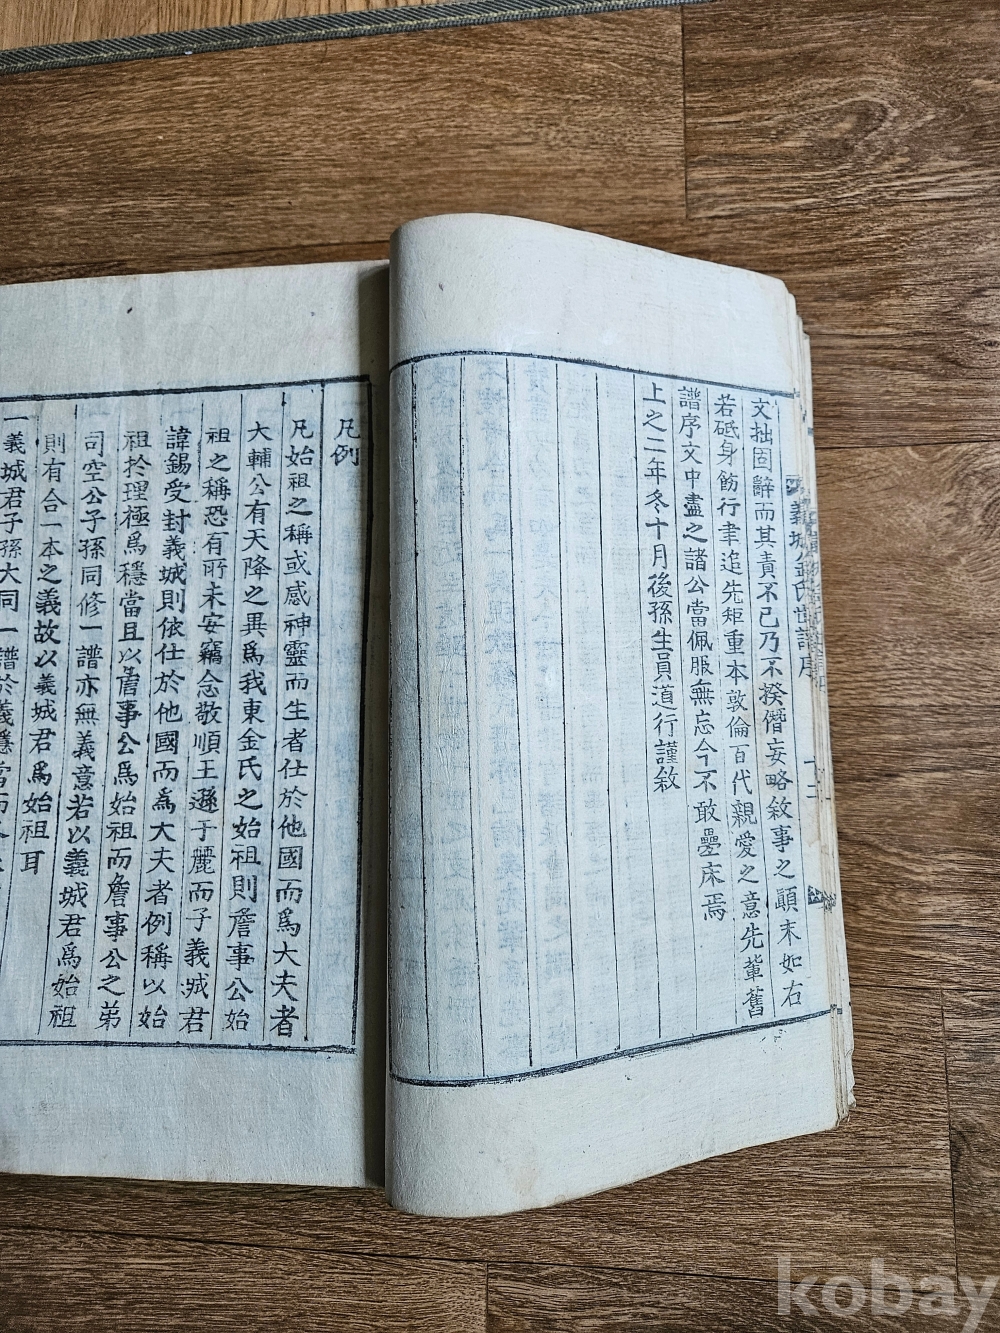 文拙固辭而其責不已乃不揆僭妄略敘事之顛末如右
若砥身飭行聿追先矩重本敦倫百代親愛之意先輩舊
譜序文中盡之諸公當佩服無忘今不敢疊床焉
上之二年冬十月後孫生員道行謹敘
義城金氏世譜序
十三
凡例
凡始祖之稱或感神靈而生者仕於他國而爲大夫者
大輔公有天降之異爲我東金氏之始祖則詹事公始
祖之稱恐有所未安竊念敬順王遜于麗而子義城君
諱錫受封義城則依仕於他國而爲大夫者例稱以始
祖於理極爲穩當且以詹事公爲始祖而詹事公之弟
司空公子孫同修一譜亦無義意若以義城君爲始祖
則有合一本之義故以義城君爲始祖耳
一義城君子孫大同一譜於義穩當而
kobay